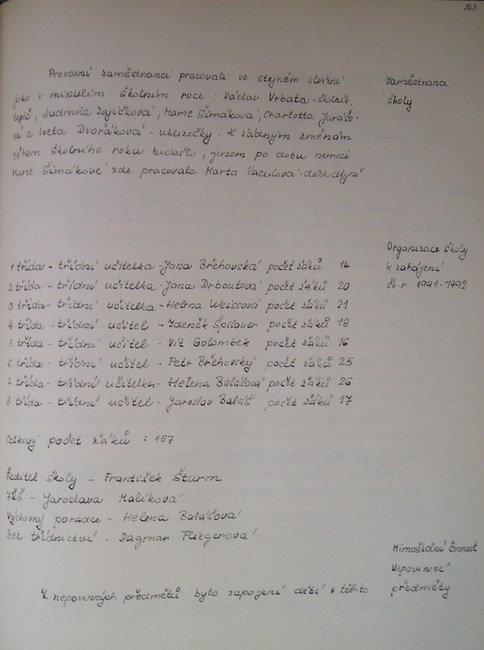 Provozní zaměstnanci pracovali ve stejném složení
jako v minulém školním roce: Václav Vrbata - školník,
topič, Ludmila Zajíčková, Marie Šimáková, Charlotta
a Iveta Dvořáková - uklízečky. K žádným změnám
během školního roku nedošlo, jenom po dobu nemoci
Marie Šimákové zde pracovala Marta
Zaměstnanci
školy
Organizace školy
k zahájení
šk. r. 1991-1992
1 třída - třídní učitelka - Jana Břehovská počet žáků 14
2 třída - třídní učitelka - Jana Drboutová počet žáků 20
3 třída - třídní učitelka - Helena Weissová počet žáků 21
4 třída - třídní učitel - Zdeněk počet žáků 18
5 třída - třídní učitel - Vít Golombek počet žáků 16
6 třída - třídní učitel - Petr Břehovský počet žáků 25
7 třída - třídní učitelka - Helena Balášová počet žáků 26
8 třída - třídní učitel - Jaroslav Baláš počet žáků 17
Celkový počet žáků : 157
Ředitel školy - František Šturm
ZŘŠ - Jaroslava Malíková
Výchovný poradce - Helena Balášová
Bez třídnictví - Dagmar
Mimoškolní činnost
Nepovinné
předměty
Z nepovinných předmětů bylo zapojení dětí v těchto